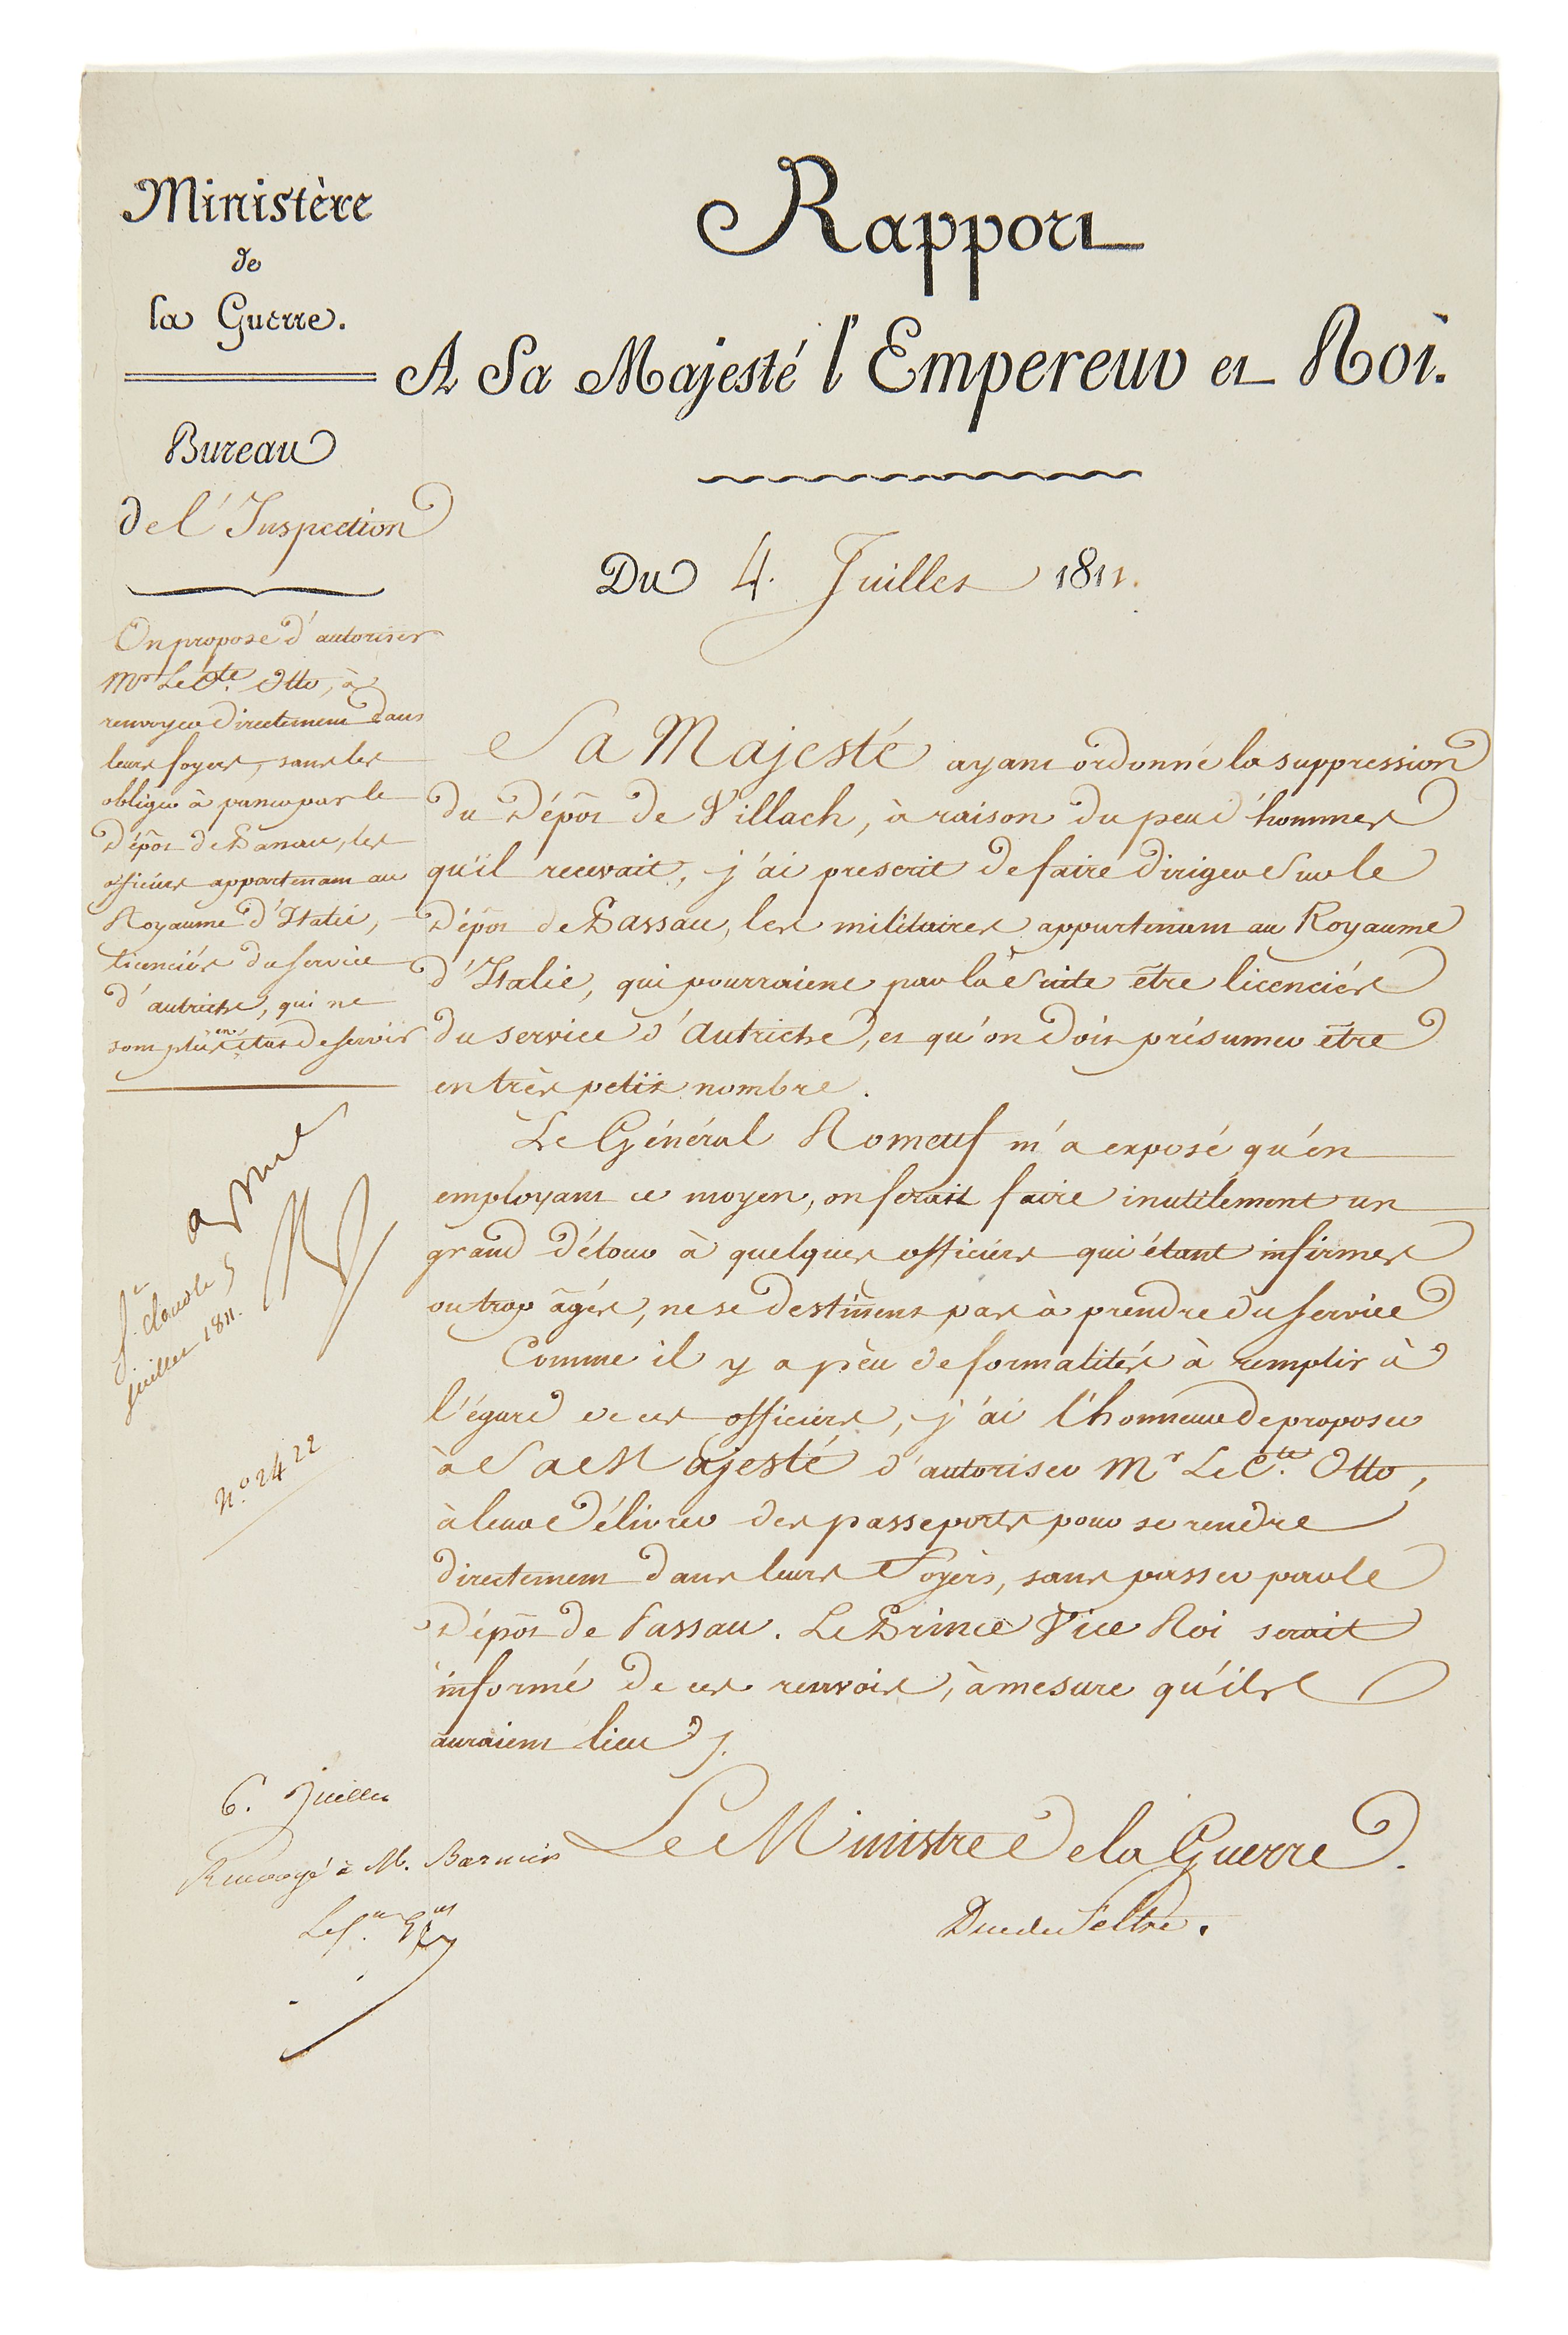 Ministère
de
la Guerre.
Bureau
de l'Inspection
On propose d'autoriser
Mr. Le Cte. Otto, à
renvoyer directement dans
leurs foyers, sans les
obliger à passer par le
Dépôt de Passau, les
officiers appartenant au
Royaume d'Italie,
licenciés du service
d'autriche, qui ne
sont plus en état de servir
St. cloud le 5
juillet 1811.
No. 2422
6. Juillet
Renvoyé à M.
Rapport
A Sa Majesté l'Empereur et Roi.
Du 4. Juillet 1811.
Sa Majesté ayant ordonné la suppression
du Dépôt de Villach, à raison du peu d'hommes
qu'il recevait, j'ai prescrit de faire diriger sur le
Dépôt de Passau, les militaires appartenant au Royaume
d'Italie, qui pourraient par la suite être licenciés
du service d'Autriche, et qu'on doit présumer être
en très petit nombre.
Le Général Romeuf m'a exposé qu'en
employant ce moyen, on ferait faire inutilement un
grand détour à quelques officiers qui étant infirmes
ou trop âgés, ne se destinent pas à prendre du service
Comme il y a peu de formalités à remplir à
l'égard de ces officiers, j'ai l'honneur de proposer
à Sa Majesté d'autoriser Mr Le Cte. Otto,
à leur délivrer des passeports pour se rendre
directement dans leurs Foyers, sans passer par le
Dépôt de Passau. Le Prince Vice Roi serait
informé de ces renvois, à mesure qu'ils
auraient lieu.
Le Ministre de la Guerre.
Duc de Feltre.